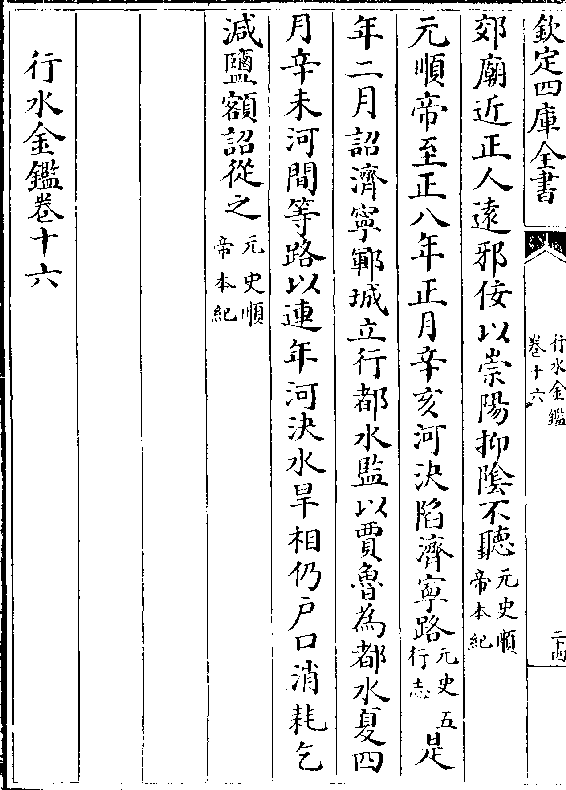 欽定四庫全書
行水金鑑
卷十六
二十四
郊廟近正人遠邪佞以崇陽抑陰不聽元史順帝本紀
元順帝至正八年正月辛亥河決陷濟寧路元史五行志是
年二月詔濟寧鄆城立行都水監以賈魯為都水夏四
月辛未河間等路以連年河決水旱相仍戶口消耗乞
減鹽額詔從之元史順帝本紀
行水金鑑卷十六